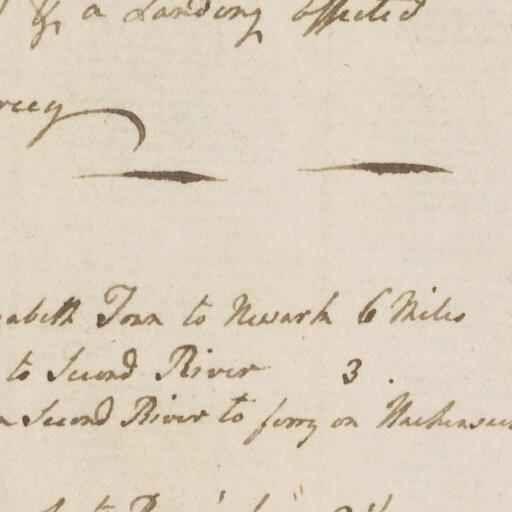 & a Landing effected
abeth Town to Newark 6 Miles
to Second River 3.
Second River to ferry on Hackensac
to